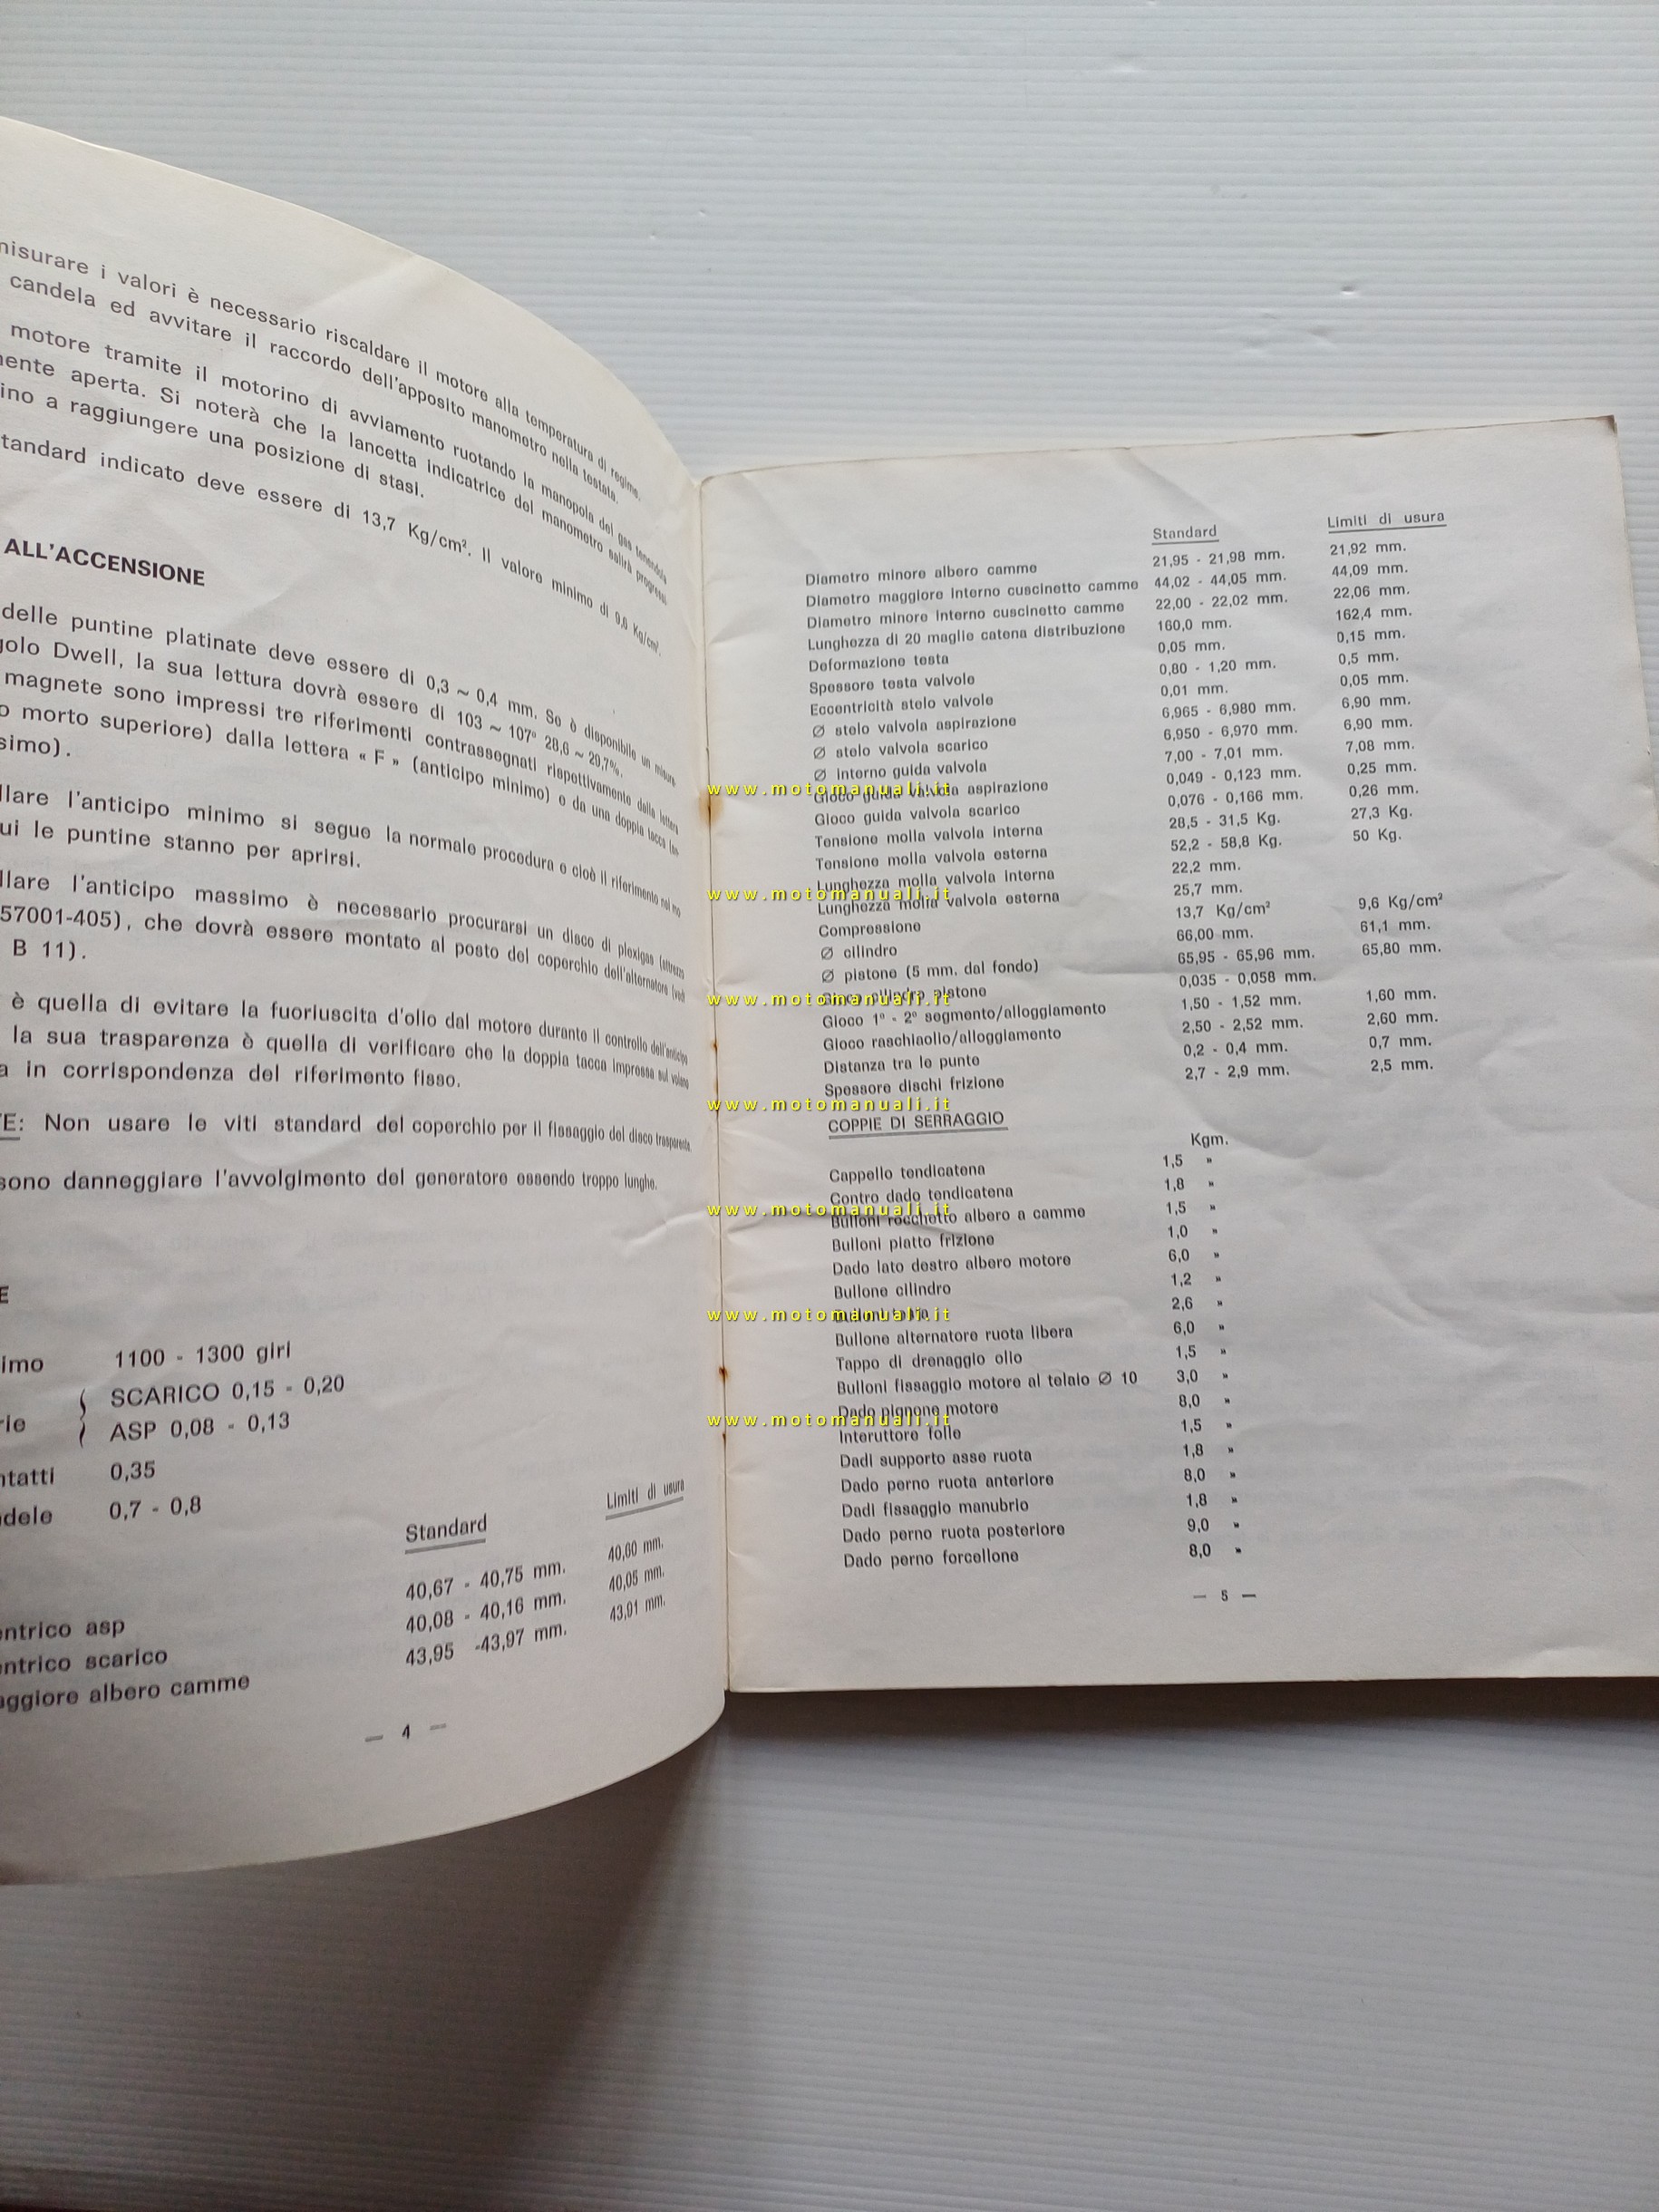 misurare i valori è necessario riscaldare il motore alla temperatura di regime,
candela ed avvitare il raccordo dell'apposito manometro nella testata.
motore tramite il motorino di avviamento ruotando la manopola del gas tenendola
mente aperta. Si noterà che la lancetta indicatrice del manometro salirà progressi
ino a raggiungere una posizione di stasi.
tandard indicato deve essere di 13,7 Kg/cm². Il valore minimo di 9,6 Kg/cm².
ALL'ACCENSIONE
delle puntine platinate deve essere di 0,3 ~ 0,4 mm. Se è disponibile un misura
golo Dwell, la sua lettura dovrà essere di 103 ~ 107° 28,6 ~ 29,7%.
magnete sono impressi tre riferimenti contrassegnati rispettivamente dalla lettera
o morto superiore) dalla lettera « F » (anticipo minimo) e da una doppia tacca (an-
simo).
llare l'anticipo minimo si segue la normale procedura e cioè il riferimento nel mo
ui le puntine stanno per aprirsi.
llare l'anticipo massimo è necessario procurarsi un disco di plexigas (attrezzo
57001-405), che dovrà essere montato al posto del coperchio dell'alternatore (vedi
B 11).
è quella di evitare la fuoriuscita d'olio dal motore durante il controllo dell'anticipo
la sua trasparenza è quella di verificare che la doppia tacca impressa sul volano
a in corrispondenza del riferimento fisso.
E: Non usare le viti standard del coperchio per il fissaggio del disco trasparente.
sono danneggiare l'avvolgimento del generatore essendo troppo lunghe.
E
imo 1100 - 1300 giri
rie { SCARICO 0,15 - 0,20
ASP 0,08 - 0,13
ntatti 0,35
ndele 0,7 - 0,8
Standard Limiti di usura
entrico asp 40,67 - 40,75 mm. 40,60 mm.
entrico scarico 40,08 - 40,16 mm. 40,05 mm.
aggiore albero camme 43,95 -43,97 mm. 43,91 mm.
— 4 —
Standard Limiti di usura
Diametro minore albero camme 21,95 - 21,98 mm. 21,92 mm.
Diametro maggiore interno cuscinetto camme 44,02 - 44,05 mm. 44,09 mm.
Diametro minore interno cuscinetto camme 22,00 - 22,02 mm. 22,06 mm.
Lunghezza di 20 maglie catena distribuzione 160,0 mm. 162,4 mm.
Deformazione testa 0,05 mm. 0,15 mm.
Spessore testa valvole 0,80 - 1,20 mm. 0,5 mm.
Eccentricità stelo valvole 0,01 mm. 0,05 mm.
Ø stelo valvola aspirazione 6,965 - 6,980 mm. 6,90 mm.
Ø stelo valvola scarico 6,950 - 6,970 mm. 6,90 mm.
Ø interno guida valvola 7,00 - 7,01 mm. 7,08 mm.
Gioco guida valvola aspirazione 0,049 - 0,123 mm. 0,25 mm.
Gioco guida valvola scarico 0,076 - 0,166 mm. 0,26 mm.
Tensione molla valvola interna 28,5 - 31,5 Kg. 27,3 Kg.
Tensione molla valvola esterna 52,2 - 58,8 Kg. 50 Kg.
Lunghezza molla valvola interna 22,2 mm.
Lunghezza molla valvola esterna 25,7 mm.
Compressione 13,7 Kg/cm² 9,6 Kg/cm²
Ø cilindro 66,00 mm. 61,1 mm.
Ø pistone (5 mm. dal fondo) 65,95 - 65,96 mm. 65,80 mm.
Gioco cilindro pistone 0,035 - 0,058 mm.
Gioco 1° - 2° segmento/alloggiamento 1,50 - 1,52 mm. 1,60 mm.
Gioco raschiaolio/alloggiamento 2,50 - 2,52 mm. 2,60 mm.
Distanza tra le punte 0,2 - 0,4 mm. 0,7 mm.
Spessore dischi frizione 2,7 - 2,9 mm. 2,5 mm.
COPPIE DI SERRAGGIO
Kgm.
Cappello tendicatena 1,5 »
Contro dado tendicatena 1,8 »
Bulloni rocchetto albero a camme 1,5 »
Bulloni piatto frizione 1,0 »
Dado lato destro albero motore 6,0 »
Bullone cilindro 1,2 »
Bulloni testa 2,6 »
Bullone alternatore ruota libera 6,0 »
Tappo di drenaggio olio 1,5 »
Bulloni fissaggio motore al telaio Ø 10 3,0 »
Dado pignone motore 8,0 »
Interuttore folle 1,5 »
Dadi supporto asse ruota 1,8 »
Dado perno ruota anteriore 8,0 »
Dadi fissaggio manubrio 1,8 »
Dado perno ruota posteriore 9,0 »
Dado perno forcellone 8,0 »
— 5 —
www.motomanuali.it
www.motomanuali.it
www.motomanuali.it
www.motomanuali.it
www.motomanuali.it
www.motomanuali.it
www.motomanuali.it